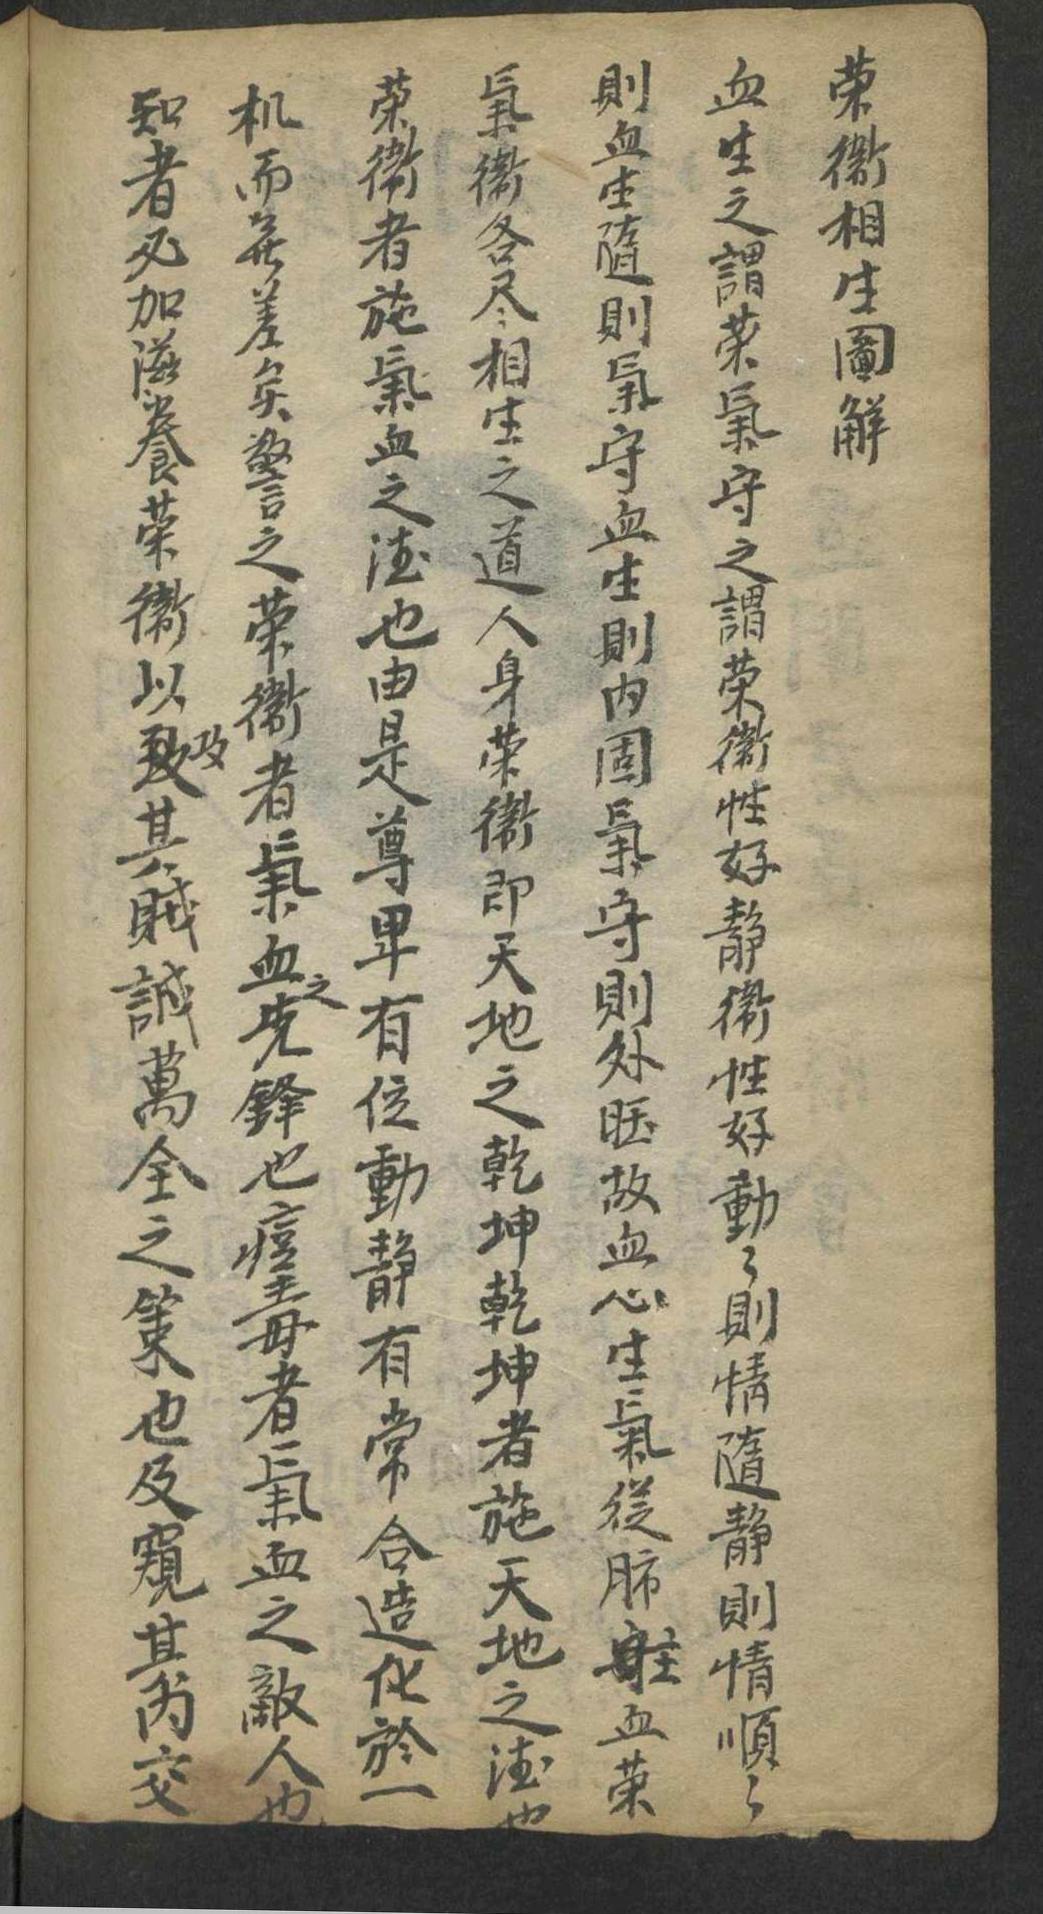 荣衞相生圖解
血生之謂荣氣守之謂荣衞性好静衞性好動〻則情隨静則情順〻
則血生隨則氣守血生則内固氣守則外旺故血心生氣從肺旺血荣
氣衞各尽相生之道人身荣衞即天地之乾坤乾坤者施天地之法也
荣衞者施氣血之法也由是尊卑有位動静有常合造化於一
机而無差矣警言之荣衞者氣血之先鋒也瘟毒者氣血之敵人也
知者必加滋養荣衞以致攻其賊誠萬全之策也及窺其内交